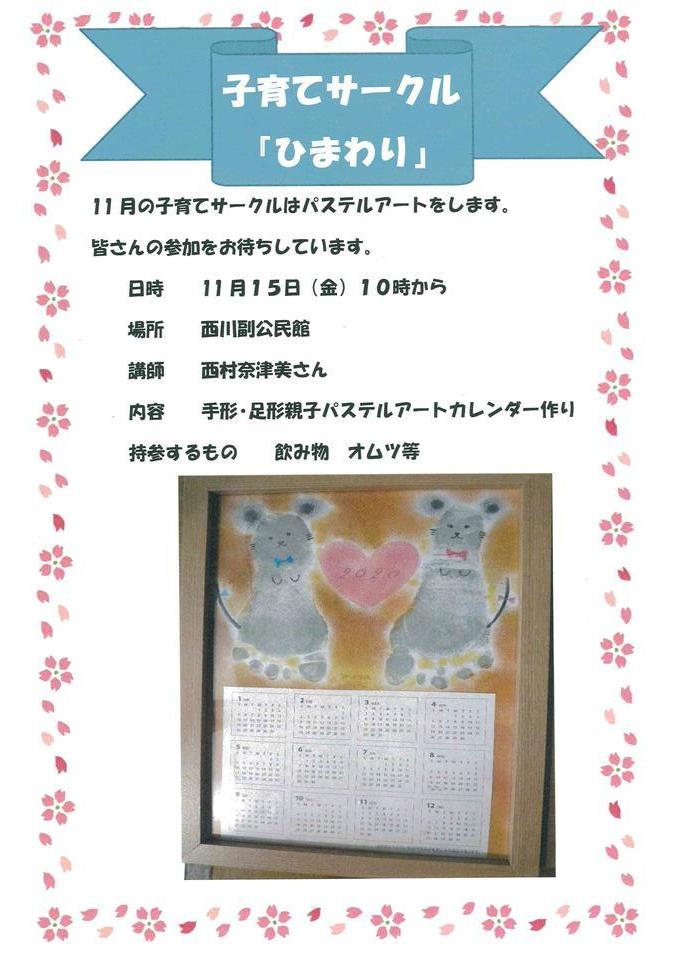 子育てサークル
「ひまわり」
11月の子育てサークルはパステルアートをします。
皆さんの参加をお待ちしています。
日時　　11月１５日（金）１０時から
場所　　西川副公民館
講師　　西村奈津美さん
内容　　手形・足形親子パステルアートカレンダー作り
持参するもの　　飲み物　オムツ等
2020
1 2 3 4
5 6 7 8
9 10 11 12